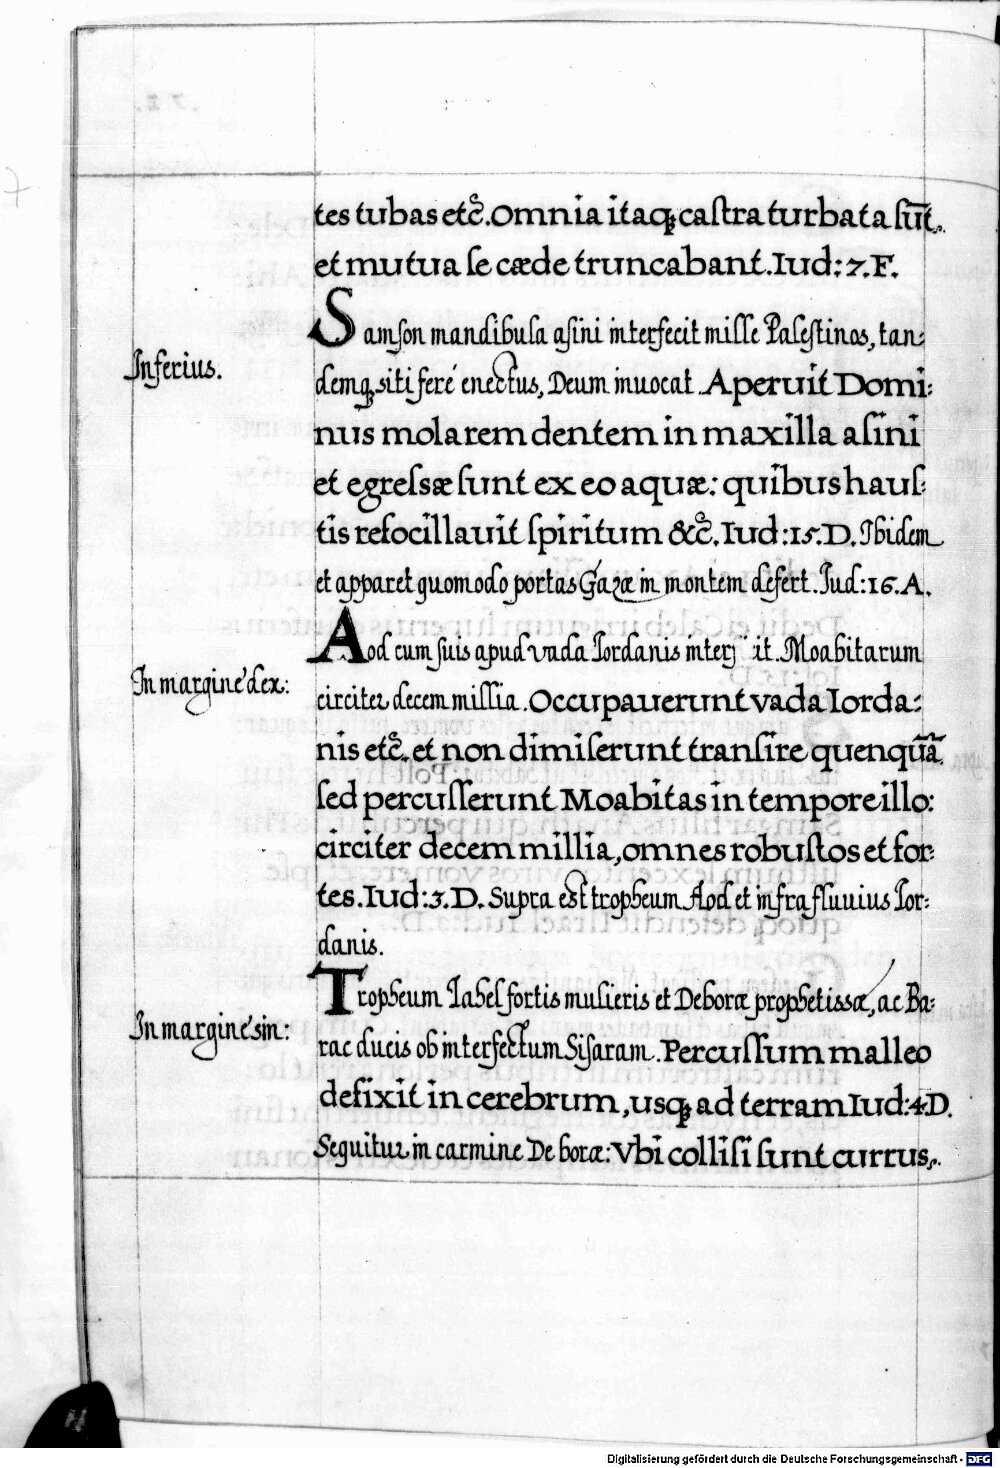 tes tubas etc̃. Omnia itaqꝫ caſtra turbata ſūt,
et mutua ſe cæde truncabant. Iud: 7. F.
Inferius.
Samſon mandibula aſini interfecit mille Paleſtinos, tan:
demqꝫ siti feré enectus, Deum inuocat. Aperuit Domi:
nus molarem dentem in maxilla aſini
et egreſsæ ſunt ex eo aquæ: quibus hauſ:
tis refocillauit ſpiritum &c̃. Iud: 15. D. Ibidem
et apparet quomodo portas Gazæ in montem defert. Iud: 16. A.
In margine dex:
Aod cum ſuis apud vada Iordanis interj it. Moabitarum
circiter decem millia. Occupauerunt vada Iorda:
nis etc̃. et non dimiſerunt tranſire quenquã,
ſed percuſſerunt Moabitas in tempore illo:
circiter decem millia, omnes robuſtos et for:
tes. Iud: 3. D. Supra est tropheum Aod et infra fluuius Ior:
danis.
In margine sin:
Tropheum Iahel fortis mulieris et Deboræ prophetissæ, ac Ba:
rac ducis ob interfectum Siſaram. Percuſſum malleo
defixit in cerebrum, usqꝫ ad terram Iud: 4. D.
Sequitur in carmine Deboræ: Vbi colliſi ſunt currus,
Digitalisierung gefördert durch die Deutsche Forschungsgemeinschaft - DFG